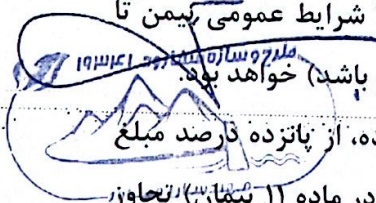 شرایط عمومی پیمن تا
باشد) خواهد بود.
ده، از پانزده درصد مبلغ
در ماده (۱ پیمان) تجاوز